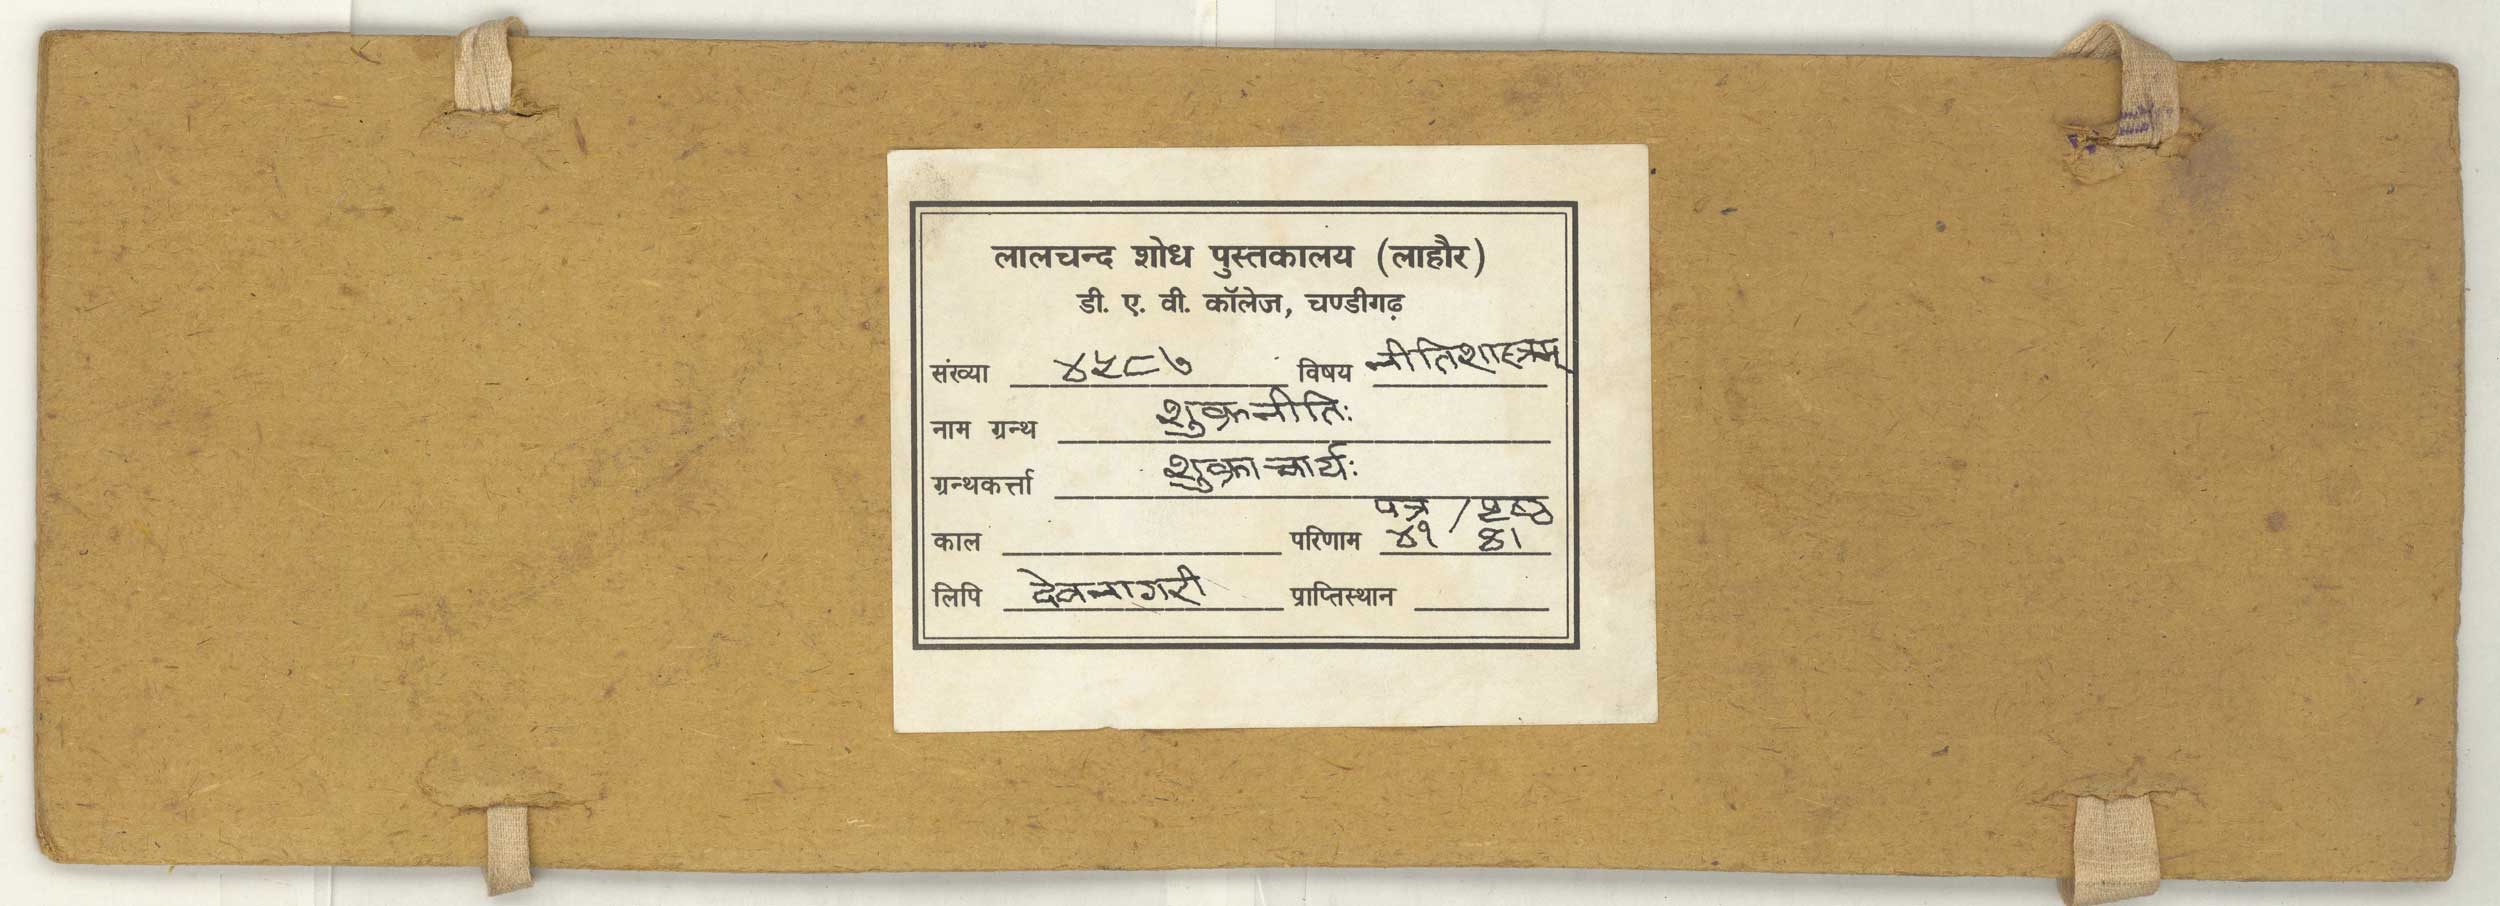 लालचन्द शोध पुस्तकालय (लाहौर)
डी. ए. वी. कॉलेज, चण्डीगढ़
संख्या ४५८७ विषय नीतिशास्त्रम्
नाम ग्रन्थ शुक्रनीतिः
ग्रन्थकर्त्ता शुक्राचार्यः
पत्र / पृष्ठ
काल परिणाम ४१
लिपि देवनागरी प्राप्तिस्थान